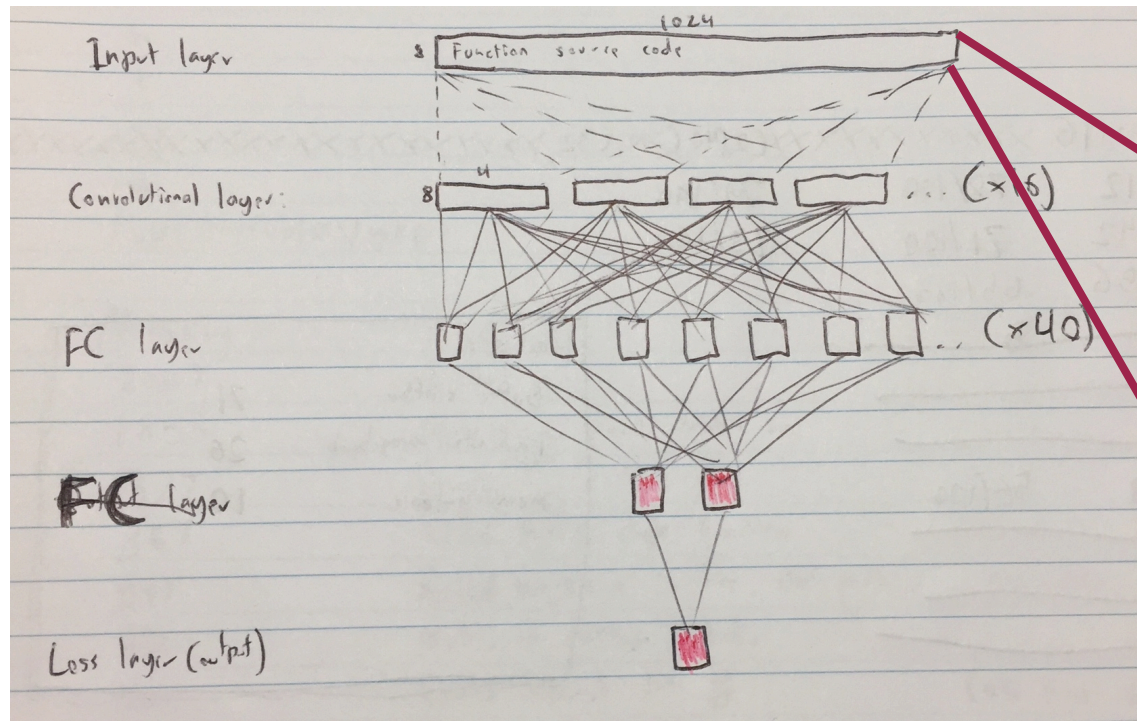 1024
Input layer 8 Function source code
4
Convolutional layer: 8 ... (x16)
FC layer ... (x40)
FC layer
Loss layer (output)